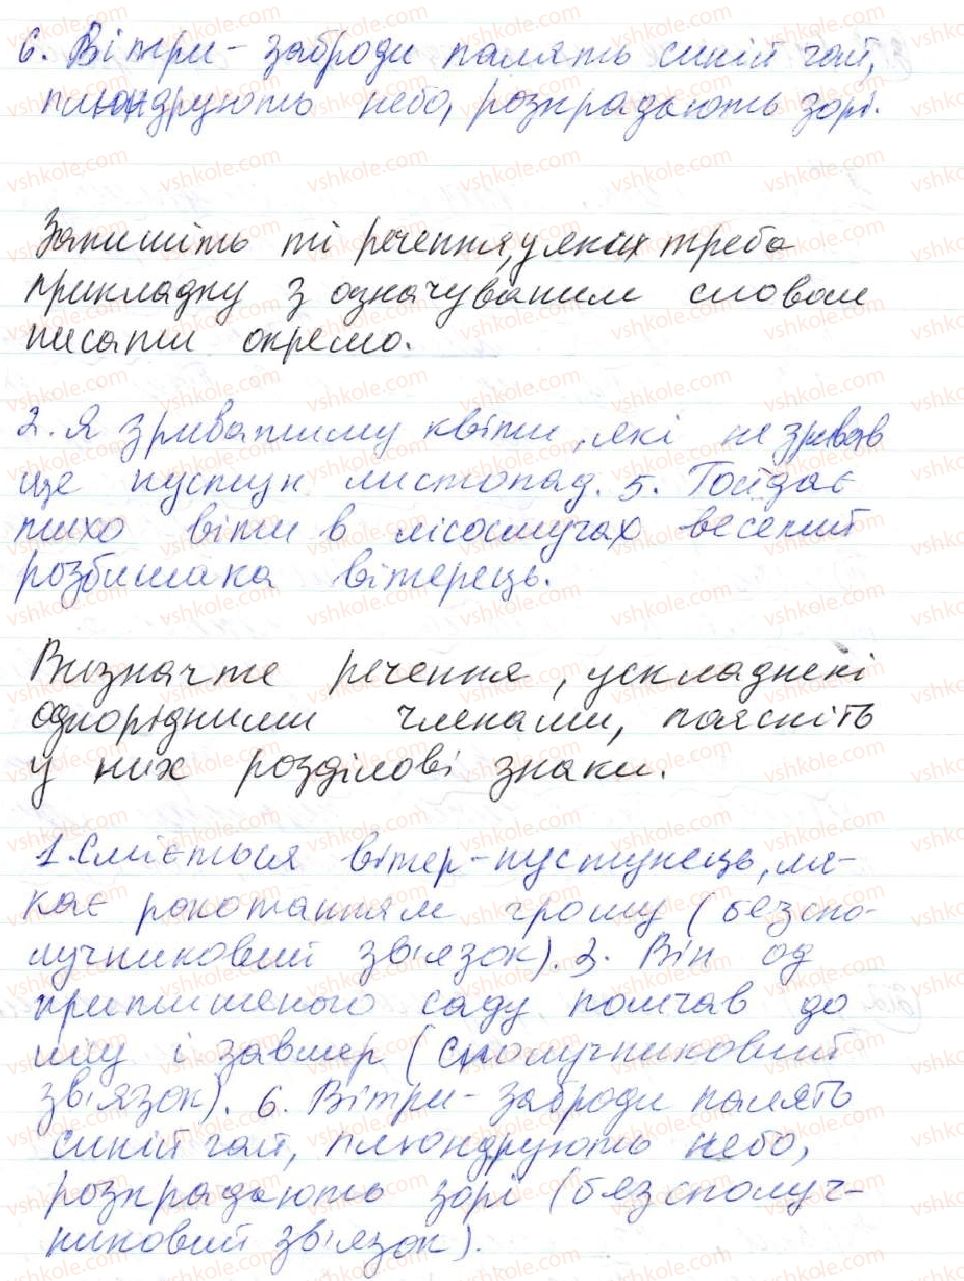 6. Вітри - заброди палять синій гай,
плюндрують небо, розкрадають зорі.
Запишіть ті речення, у яких треба
прикладку з означуваним словом
писати окремо.
2. Я зриватиму квіти, які не зривав
ще пустун листопад. 5. Гойдає
тихо віти в лісосмугах веселий
розбишака вітерець.
Визначте речення, ускладнені
однорідними членами, поясніть
у них розділові знаки.
1. Сміється вітер-пустунець, ля-
кає рокотанням грому (безспо-
лучниковий зв'язок). 3. Він од
притишеного саду помчав до
шу і завмер (сполучниковий
зв'язок). 6. Вітри - заброди палять
синій гай, плюндрують небо,
розкрадають зорі (безсполуч-
никовий зв'язок).